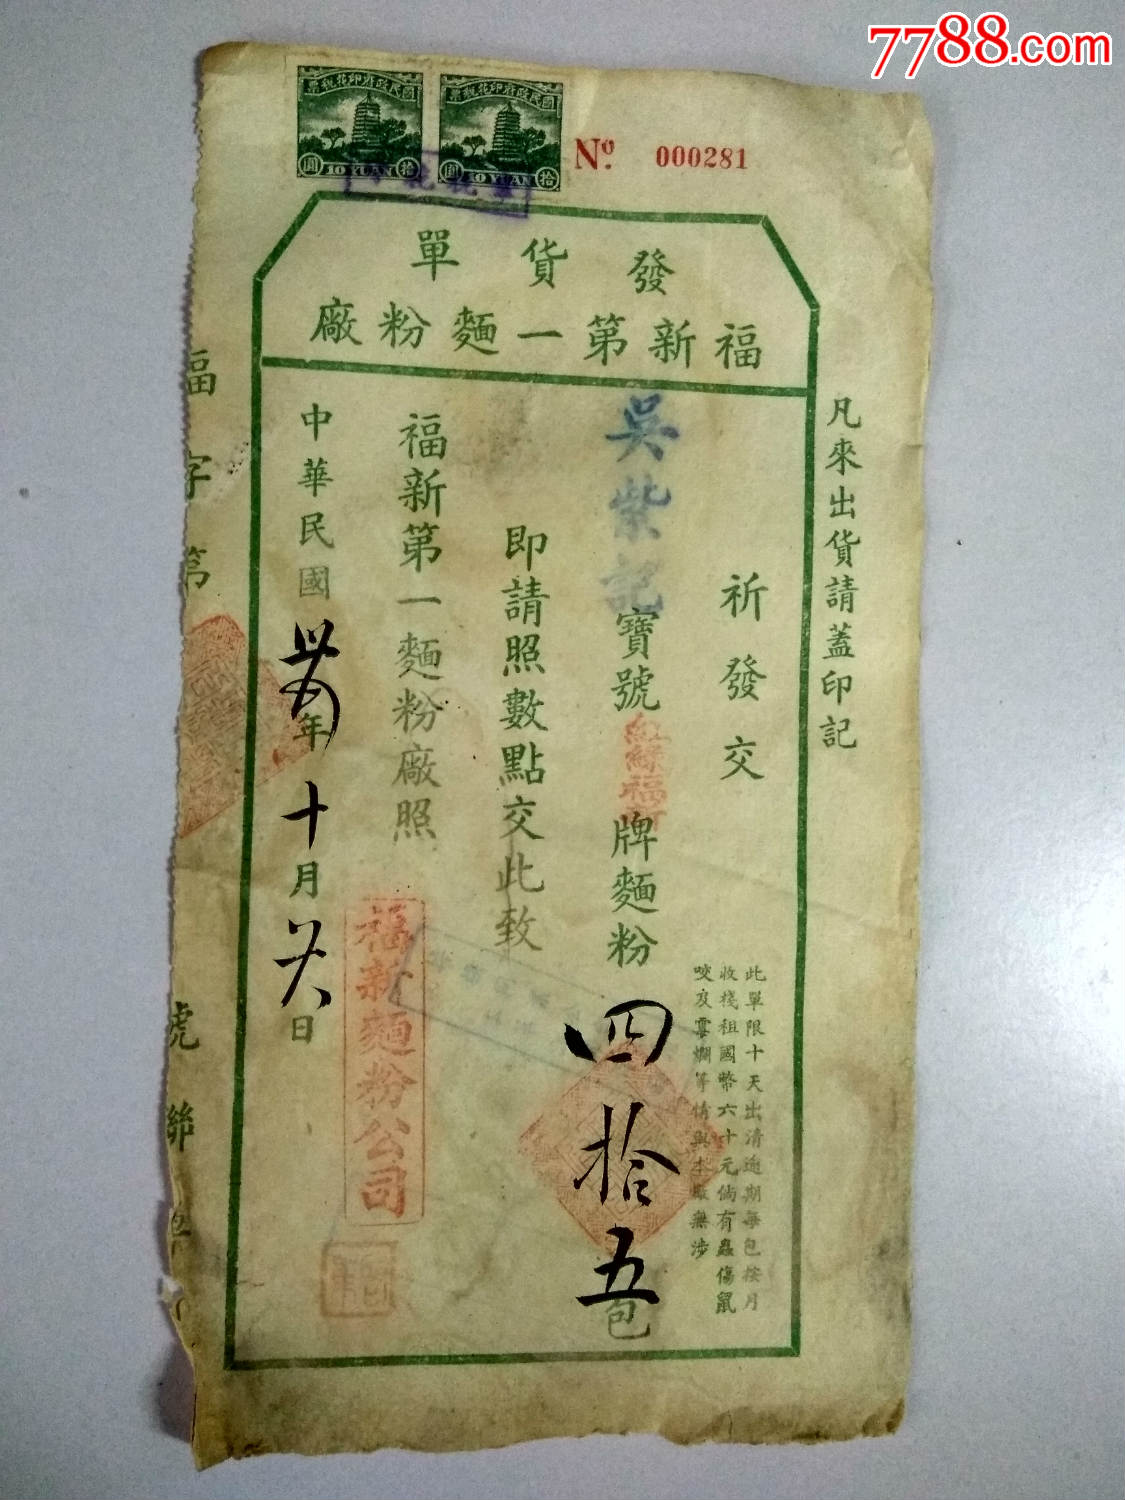 7788.com
國民政府印花稅票
10 YUAN
拾
圓
國民政府印花稅票
10 YUAN
拾
圓
No. 000281
發貨單
福新第一麵粉廠
凡來出貨請蓋印記
祈發交
吳紫記寶號紅綠福新牌麵粉四拾五包
此單限十天出清逾期每包按月
收棧租國幣六十元倘有蟲傷鼠
咬及霉爛等情與本廠無涉
即請照數點交此致
福新第一麵粉廠照
福新麵粉公司
中華民國卅五年十月廿八日
福字第
號聯單